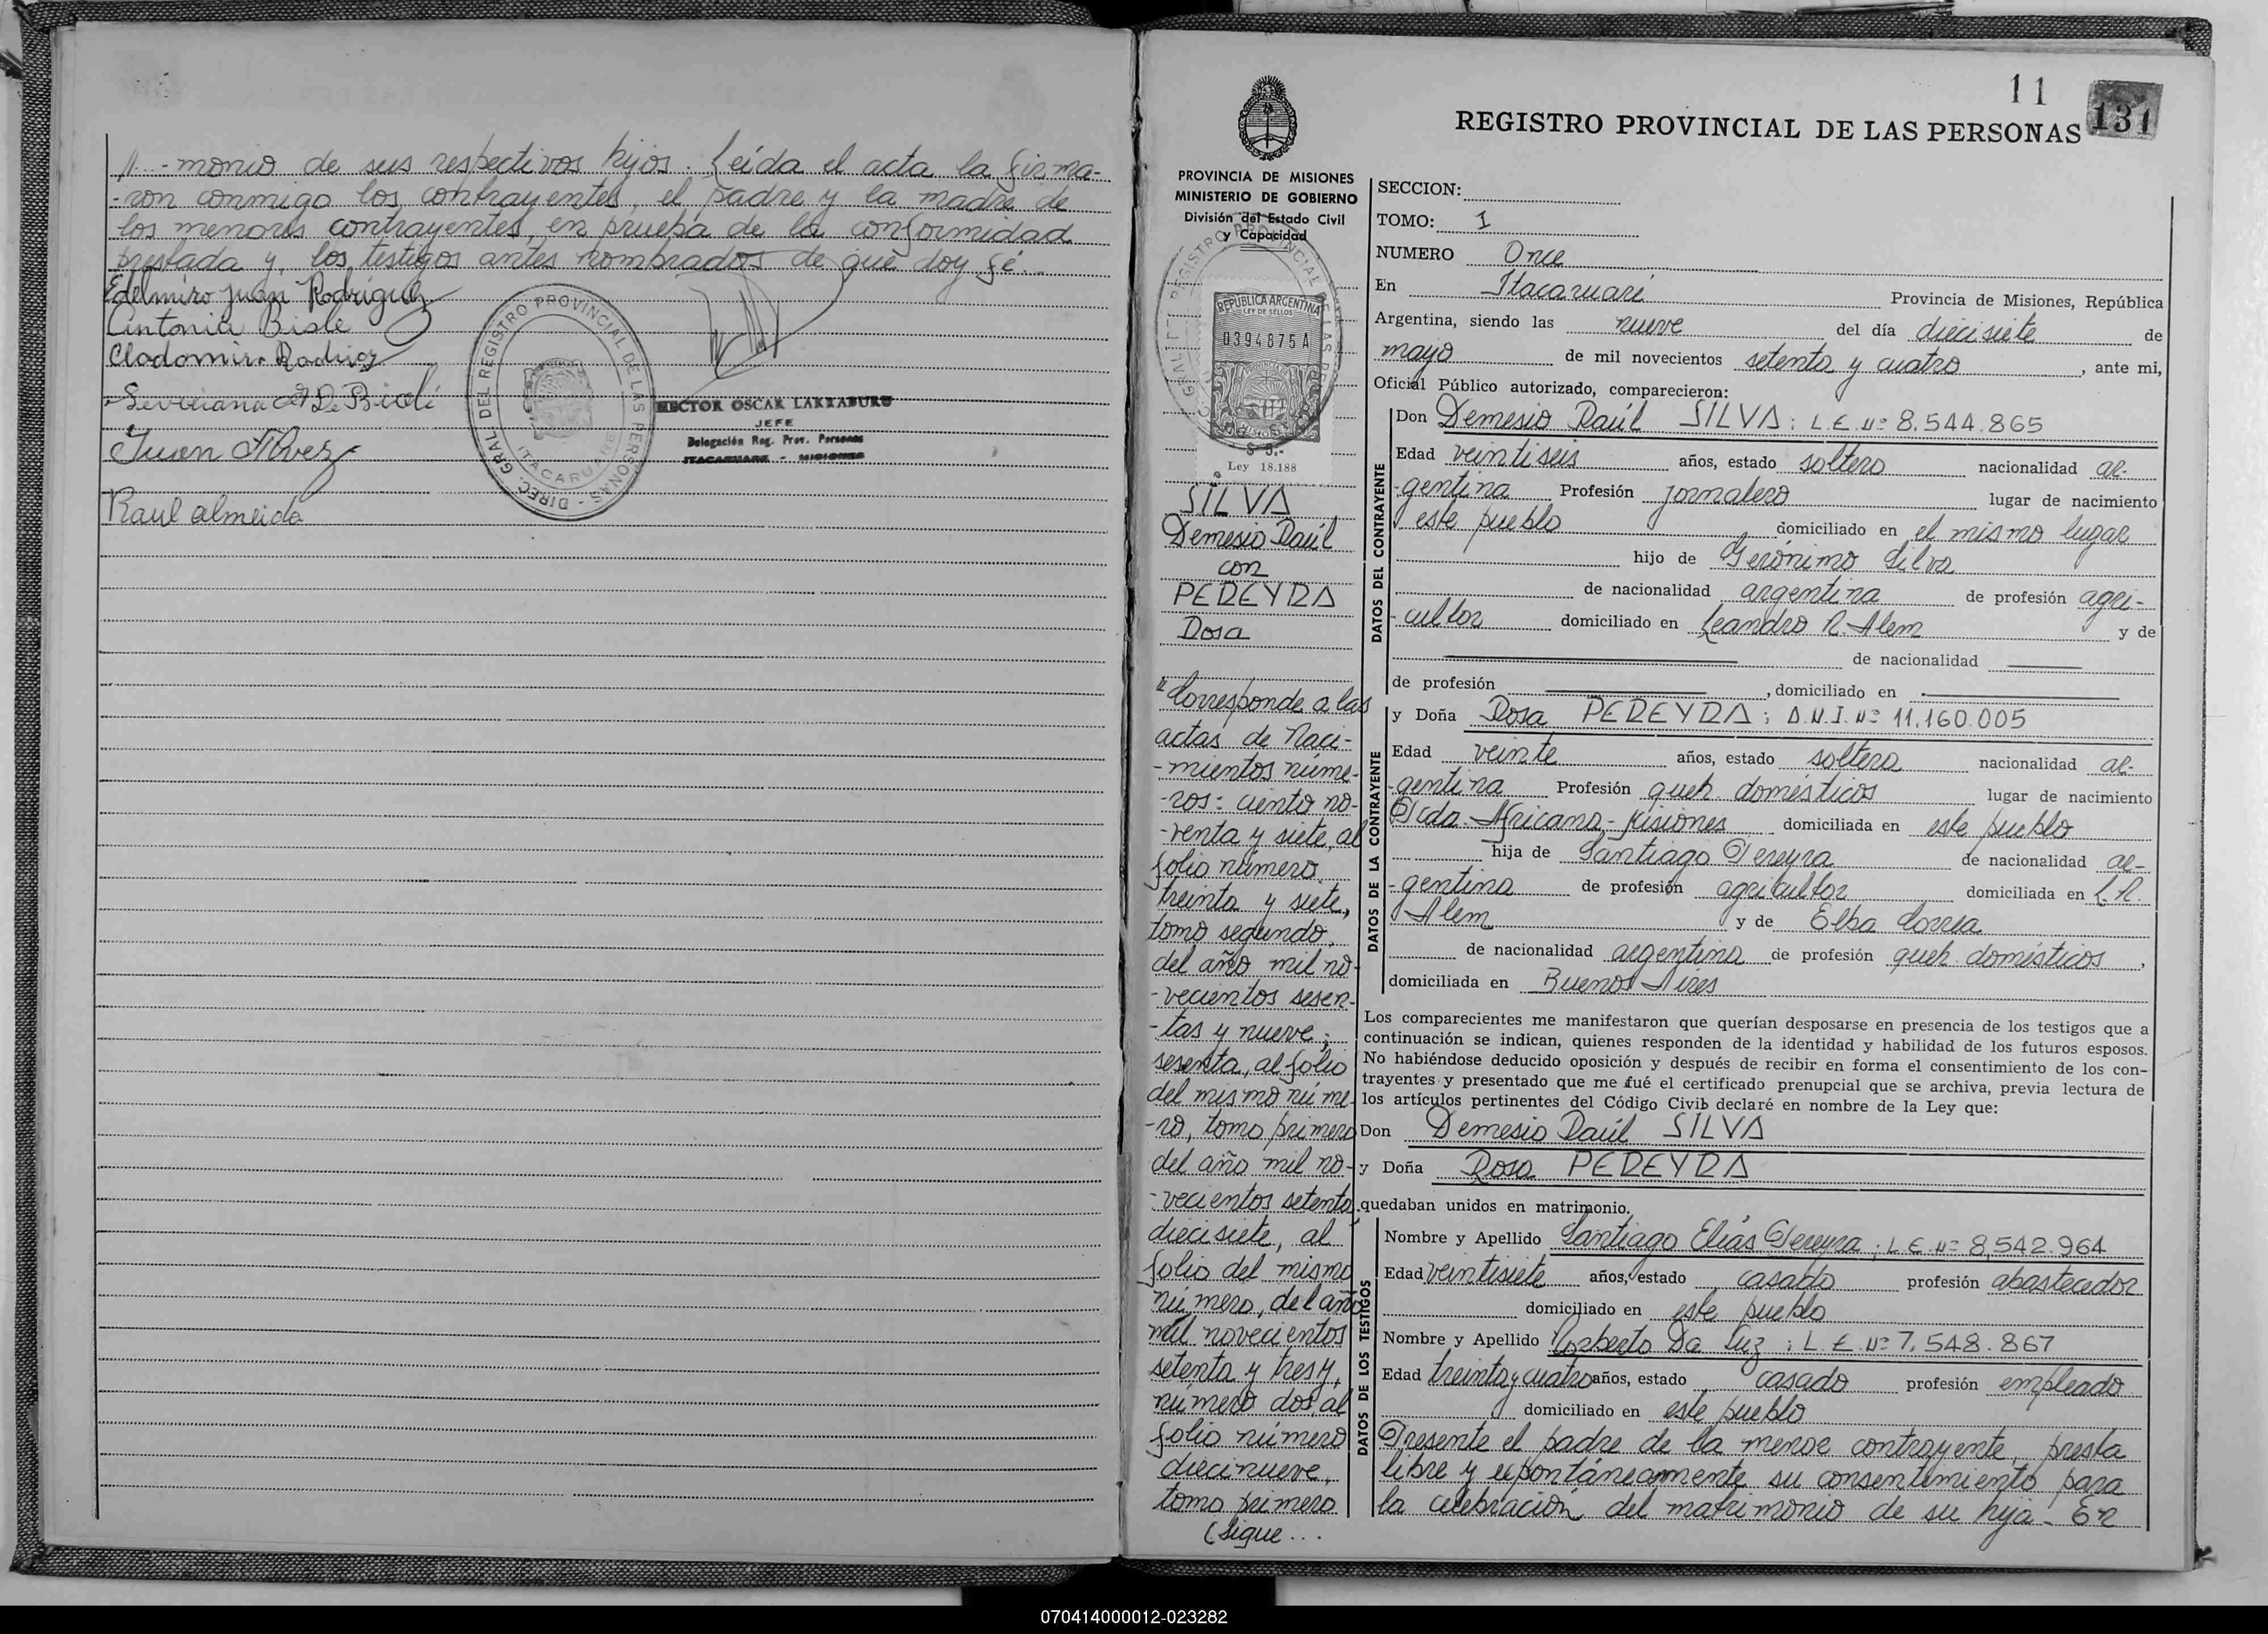 //...-monio de sus respectivos hijos. Leída el acta la firma-
-ron conmigo los contrayentes, el padre y la madre de
los menores contrayentes, en prueba de la conformidad
prestada y, los testigos antes nombrados de que doy fé.-
Edelmiro Juan Rodriguez
Antonia
Clodomiro Rodriguez
Juan Alvez
Raul almeida
DIREC. GRAL DEL REGISTRO PROVINCIAL DE LAS PERSONAS -
ITACARUARE
HECTOR OSCAR LARRABURU
JEFE
Delegación Reg. Prov. Personas
ITACARUARE - MISIONES
11
131
REGISTRO PROVINCIAL DE LAS PERSONAS
PROVINCIA DE MISIONES
MINISTERIO DE GOBIERNO
División del Estado Civil
y Capacidad
REPUBLICA ARGENTINA
LEY DE SELLOS
0394875A
Ley 18.188
SILVA
Demesio Raúl
con
PEREYRA
Rosa
"Corresponde a las
actas de Naci-
-mientos núme-
-ros: ciento no-
-venta y siete, al
folio número
treinta y siete,
tomo segundo,
del año mil no-
-vecientos sesen-
-tas y nueve;
sesenta, al folio
del mismo núme-
-ro, tomo primero
del año mil no-
-vecientos setenta,
diecisiete, al
folio del mismo
número, del año
mil novecientos
setenta y tres y,
número dos, al
folio número
diecinueve,
tomo primero
(Sigue...
SECCION:
TOMO: 1
NUMERO Once
En Itacaruaré Provincia de Misiones, República
Argentina, siendo las nueve del día diecisiete de
mayo de mil novecientos setenta y cuatro, ante mi,
Oficial Público autorizado, comparecieron:
DATOS DEL CONTRAYENTE
Don Demesio Raúl SILVA; L.E. Nº 8.544.865
Edad veintiseis años, estado soltero nacionalidad ar-
-gentina Profesión jornalero lugar de nacimiento
este pueblo domiciliado en el mismo lugar
hijo de Gerónimo Silva
de nacionalidad argentina de profesión agri-
-cultor domiciliado en Leandro N. Alem y de
de nacionalidad
de profesión , domiciliado en
DATOS DE LA CONTRAYENTE
y Doña Rosa PEREYRA; D.N.I. Nº 11.160.005
Edad veinte años, estado soltera nacionalidad ar-
-gentina Profesión queh. domésticos lugar de nacimiento
Pcda. Africana - Misiones domiciliada en este pueblo
hija de Santiago Pereyra de nacionalidad ar-
-gentina de profesión agricultor domiciliada en L.N.
Alem y de Elba Correa
de nacionalidad argentina de profesión queh. domésticos,
domiciliada en Buenos Aires
Los comparecientes me manifestaron que querían desposarse en presencia de los testigos que a
continuación se indican, quienes responden de la identidad y habilidad de los futuros esposos.
No habiéndose deducido oposición y después de recibir en forma el consentimiento de los con-
trayentes y presentado que me fué el certificado prenupcial que se archiva, previa lectura de
los artículos pertinentes del Código Civil declaré en nombre de la Ley que:
Don Demesio Raúl SILVA
y Doña Rosa PEREYRA
quedaban unidos en matrimonio.
DATOS DE LOS TESTIGOS
Nombre y Apellido Santiago Elías Pereyra; L.E. Nº 8,542.964
Edad veintisiete años, estado casado profesión abastecedor
domiciliado en este pueblo
Nombre y Apellido Norberto Da Luz; L.E. Nº 7.548.867
Edad treinta y cuatro años, estado casado profesión empleado
domiciliado en este pueblo
Presente el padre de la menor contrayente, presta
libre y expontáneamente su consentimiento para
la celebración del matrimonio de su hija.- En
070414000012-023282